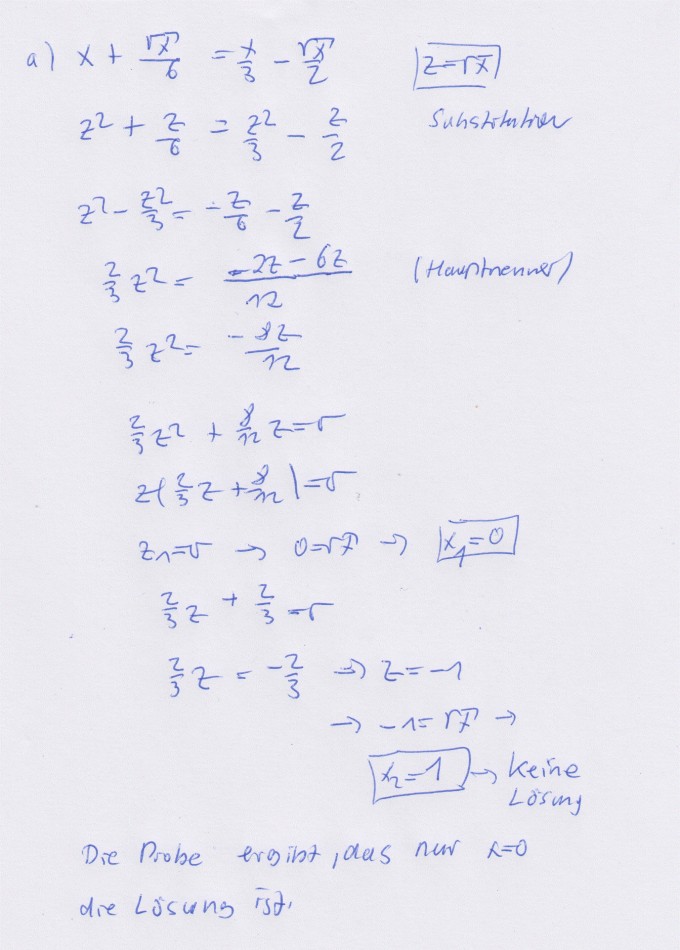 a) x + √x/6 = x/3 - √x/2 z=√x
z² + z/6 = z²/3 - z/2 Substitution
z² - z²/3 = -z/6 - z/2
2/3 z² = (-2z - 6z)/12 (Hauptnenner)
2/3 z² = -8z/12
2/3 z² + 8/12 z = 0
z(2/3 z + 8/12) = 0
z₁=0 → 0=√x → x₁=0
2/3 z + 2/3 = 0
2/3 z = -2/3 → z = -1
→ -1 = √x →
x₂=1 → keine
Lösung
Die Probe ergibt, das nur x=0
die Lösung ist.